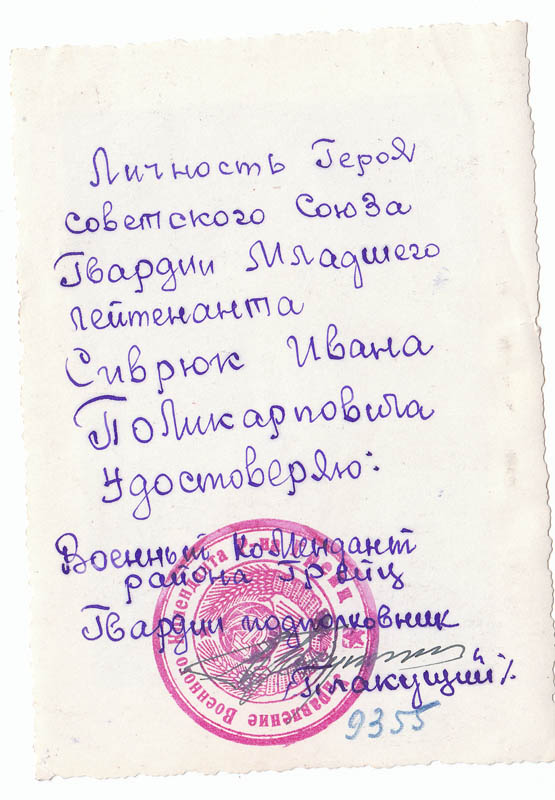 Личность Героя
советского Союза
Гвардии Младшего
лейтенанта
Сиврюк Ивана
Поликарповича
Удостоверяю:
Военный Комендант
района Грейц
Гвардии подполковник
/Плакущий/.
9355
Управление Военного Коменданта